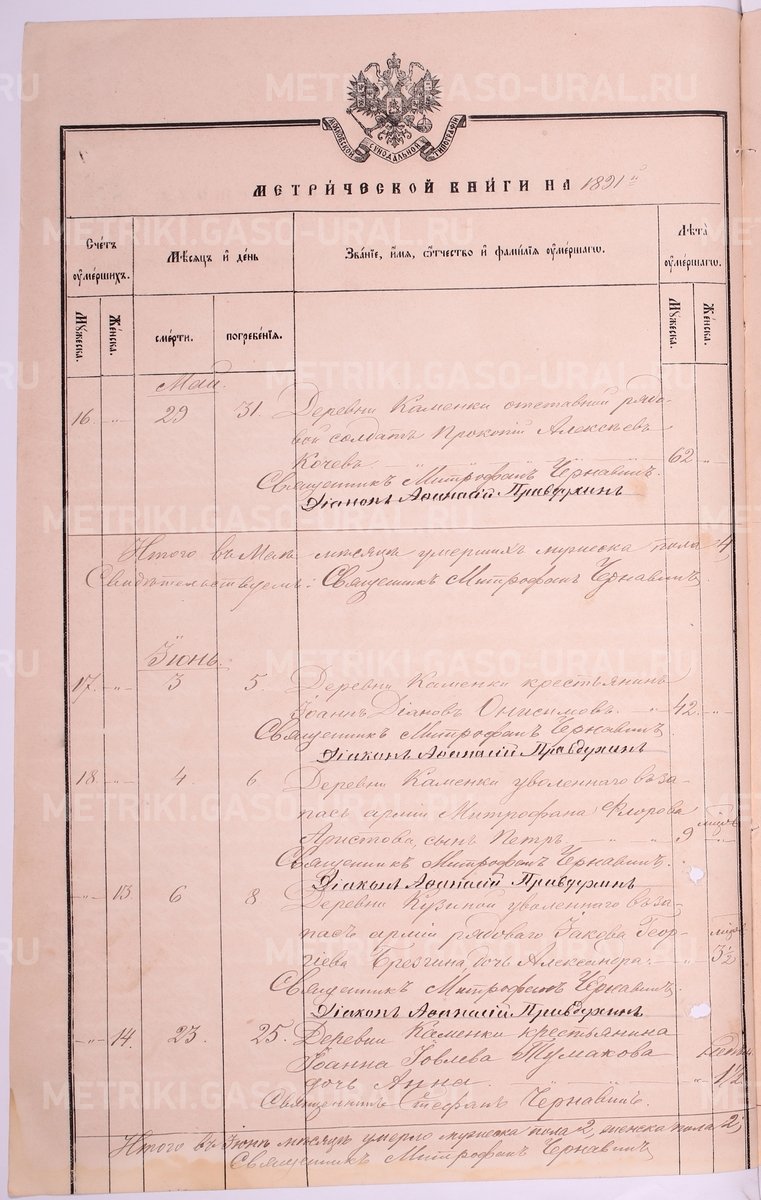 МОСКОВСКОЙ СѴНОДАЛЬНОЙ ТИПОГРАФІИ
МЕТРИ́ЧЕСКОЙ КНИ́ГИ НА 1891й
Сче́тъ оу҆ме́ршихъ.
Мѣ́сяцъ и҆ де́нь
Зва́нїе, и҆́мя, ѻ҆́тчество и҆ фами́лїя оу҆ме́ршагѡ.
Лѣ́та оу҆ме́ршагѡ.
Мꙋ́жеска.
Же́нска.
сме́рти.
погребе́нїѧ.
Мꙋ́жеска.
Же́нска.
Май.
16. „ 29 31. Деревни Каменки отставной рядо-
вой солдатъ Прокопій Алексѣевъ
Кочевъ. 62 „
Священникъ Митрофанъ Чернавинъ.
Діаконъ Аѳанасій Правдухинъ
Итого въ Маѣ мѣсяцѣ умершихъ мужеска пола 4
Свидѣтельствуемъ: Священникъ Митрофанъ Чернавинъ.
Іюнь.
17. „ 3 5. Деревни Каменки крестьянинъ
Іоаннъ Діановъ Онисимовъ. 42. „
Священникъ Митрофанъ Чернавинъ.
Діаконъ Аѳанасій Правдухинъ
18. „ 4. 6. Деревни Каменки уволеннаго въ за-
пасъ арміи Митрофана Флорова
Аристова, сынъ Петръ 9 мѣс.
Священникъ Митрофанъ Чернавинъ.
Діаконъ Аѳанасій Правдухинъ
„ 13. 6 8. Деревни Кузиной уволеннаго въ за-
пасъ арміи рядоваго Іакова Геор-
гіева Брезгина, дочь Александра. „ 3½
Священникъ Митрофанъ Чернавинъ.
Діаконъ Аѳанасій Правдухинъ
„ 14. 23. 25. Деревни Каменки крестьянина
Іоанна Іовлева Тумакова
дочь Анна. „ 1½
Священникъ Стефанъ Чернавинъ.
Итого въ Іюнѣ мѣсяцѣ умерло мужеска пола 2, женска пола 2;
Священникъ Митрофанъ Чернавинъ
METRIKI.GASO-URAL.RU